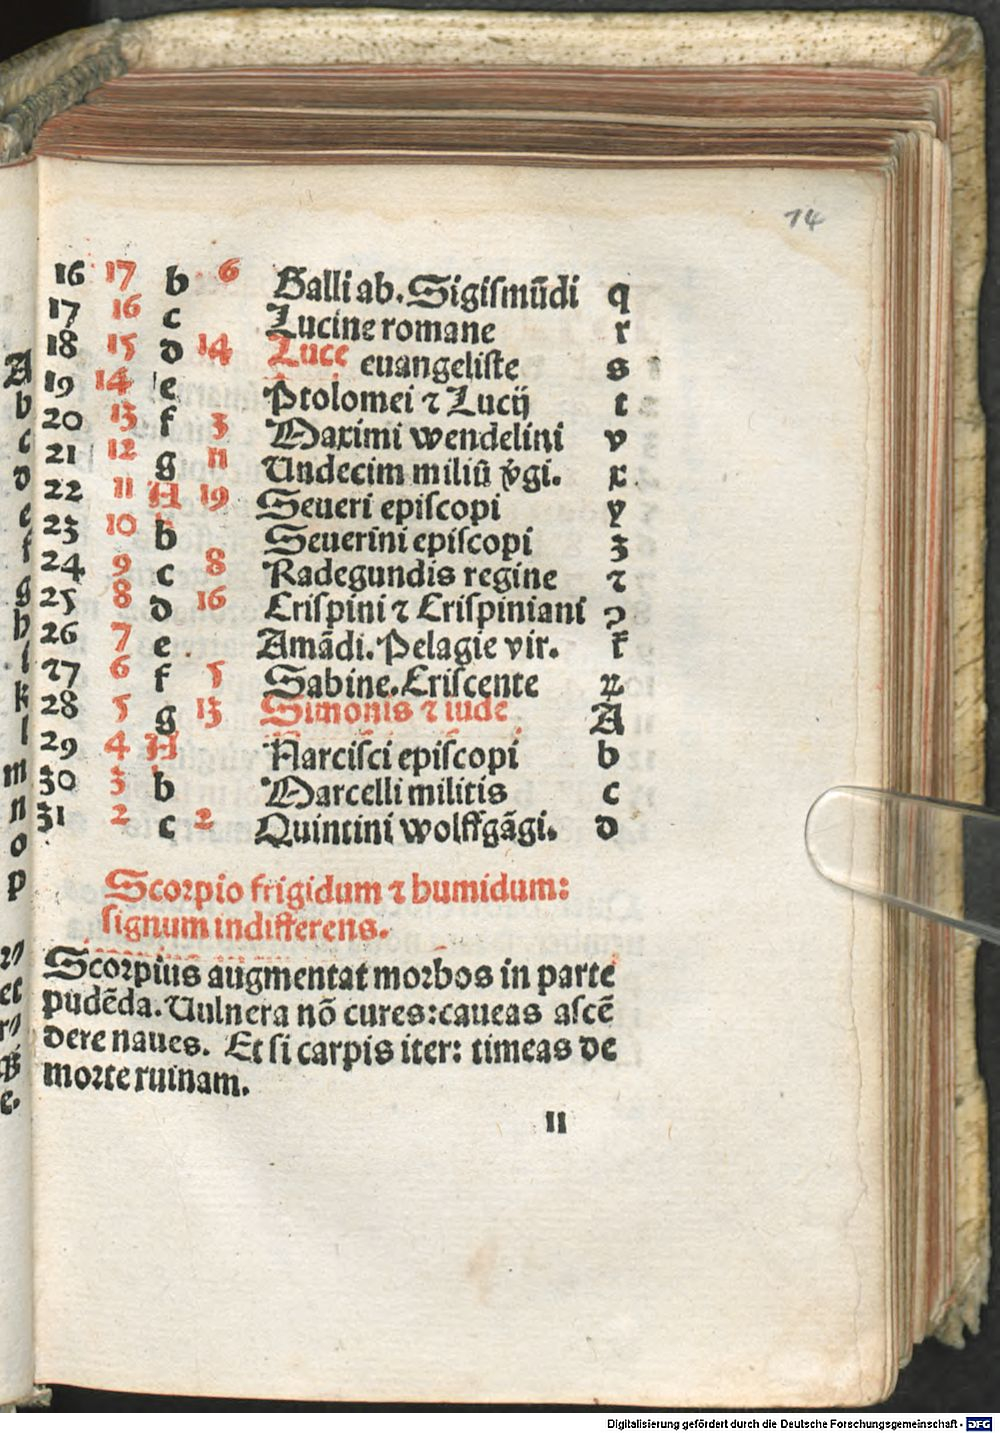 14
16 17 b 6 Galli ab. Sigiſmūdi q
17 16 c Lucine romane r
18 15 d 14 Luce euangeliſte s
19 14 e Ptolomei ⁊ Lucij t
20 13 f 3 Maximi wendelini v
21 12 g 11 Undecim miliū v̓gi. x
22 11 A 19 Seueri epiſcopi y
23 10 b Seuerini epiſcopi ʒ
24 9 c 8 Radegundis regine ⁊
25 8 d 16 Criſpini ⁊ Criſpiniani ꝯ
26 7 e Amādi. Pelagie vir.
27 6 f 5 Sabine. Criſcente
28 5 g 13 Simonis ⁊ iude A
29 4 A Narciſci epiſcopi b
30 3 b Marcelli militis c
31 2 c 2 Quintini wolffgāgi. d
Scorpio frigidum ⁊ humidum:
ſignum indifferens.
Scorpius augmentat morbos in parte
pudēda. Uulnera nō cures: caueas aſcē
dere naues. Et ſi carpis iter: timeas de
morte ruinam.
II
A
b
c
d
e
f
g
h
i
k
l
m
n
o
p
et
e.
Digitalisierung gefördert durch die Deutsche Forschungsgemeinschaft - DFG